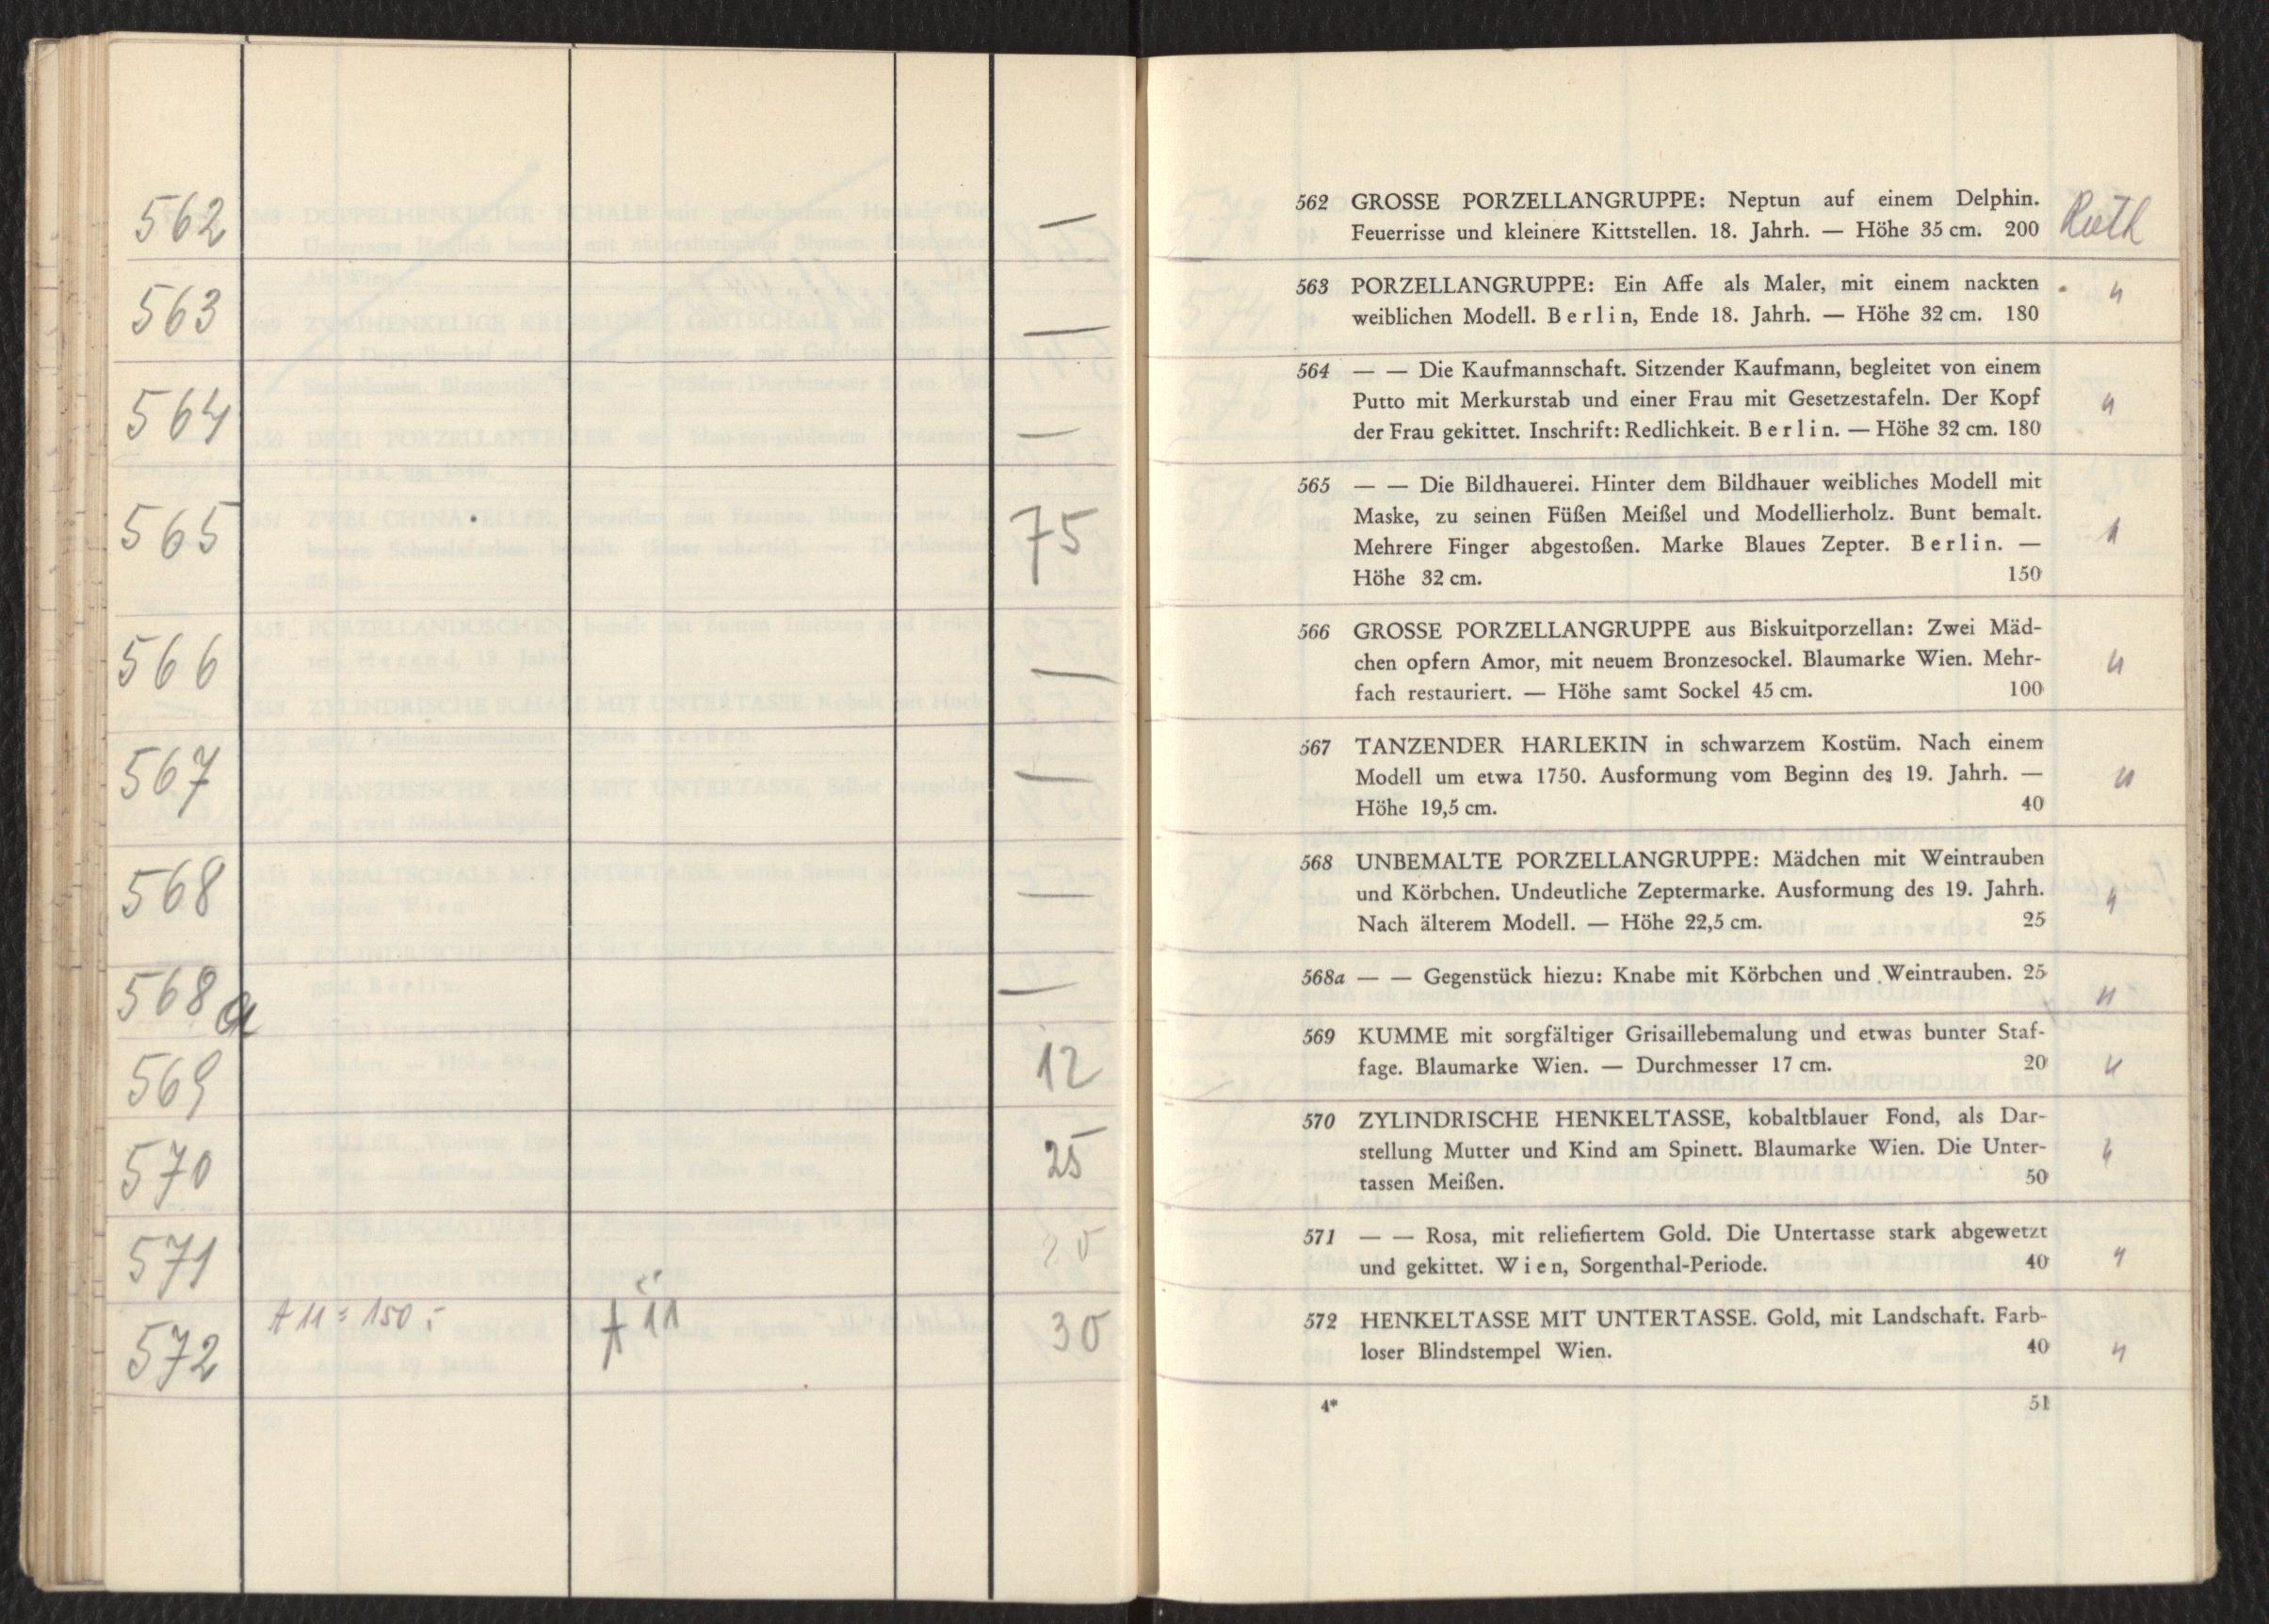 562 —
563 —
564 —
565 75
566 —
567 —
568 —
568a —
569 12
570 25
571 20
572 A 11 = 150,- A 11 30
562 GROSSE PORZELLANGRUPPE: Neptun auf einem Delphin.
Feuerrisse und kleinere Kittstellen. 18. Jahrh. — Höhe 35 cm. 200 Roth
563 PORZELLANGRUPPE: Ein Affe als Maler, mit einem nackten "
weiblichen Modell. Berlin, Ende 18. Jahrh. — Höhe 32 cm. 180
564 — — Die Kaufmannschaft. Sitzender Kaufmann, begleitet von einem
Putto mit Merkurstab und einer Frau mit Gesetzestafeln. Der Kopf "
der Frau gekittet. Inschrift: Redlichkeit. Berlin. — Höhe 32 cm. 180
565 — — Die Bildhauerei. Hinter dem Bildhauer weibliches Modell mit
Maske, zu seinen Füßen Meißel und Modellierholz. Bunt bemalt. "
Mehrere Finger abgestoßen. Marke Blaues Zepter. Berlin. —
Höhe 32 cm. 150
566 GROSSE PORZELLANGRUPPE aus Biskuitporzellan: Zwei Mäd-
chen opfern Amor, mit neuem Bronzesockel. Blaumarke Wien. Mehr- "
fach restauriert. — Höhe samt Sockel 45 cm. 100
567 TANZENDER HARLEKIN in schwarzem Kostüm. Nach einem
Modell um etwa 1750. Ausformung vom Beginn des 19. Jahrh. — "
Höhe 19,5 cm. 40
568 UNBEMALTE PORZELLANGRUPPE: Mädchen mit Weintrauben
und Körbchen. Undeutliche Zeptermarke. Ausformung des 19. Jahrh. "
Nach älterem Modell. — Höhe 22,5 cm. 25
568a — — Gegenstück hiezu: Knabe mit Körbchen und Weintrauben. 25 "
569 KUMME mit sorgfältiger Grisaillebemalung und etwas bunter Staf-
fage. Blaumarke Wien. — Durchmesser 17 cm. 20 "
570 ZYLINDRISCHE HENKELTASSE, kobaltblauer Fond, als Dar-
stellung Mutter und Kind am Spinett. Blaumarke Wien. Die Unter- "
tassen Meißen. 50
571 — — Rosa, mit reliefiertem Gold. Die Untertasse stark abgewetzt
und gekittet. Wien, Sorgenthal-Periode. 40 "
572 HENKELTASSE MIT UNTERTASSE. Gold, mit Landschaft. Farb-
loser Blindstempel Wien. 40 "
4* 51